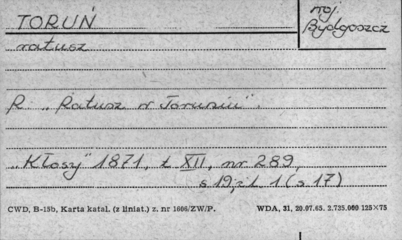 TORUŃ
woj.
Bydgoszcz
ratusz
R. „Ratusz w Toruniu".
„Kłosy" 1871, t. XII, nr 289,
s 19, il. 1 (s 17)
CWD, B-15b, Karta katal. (z liniat.) z. nr 1606/ZW/P. WDA, 31, 20.07.65. 2.735.000 125×75